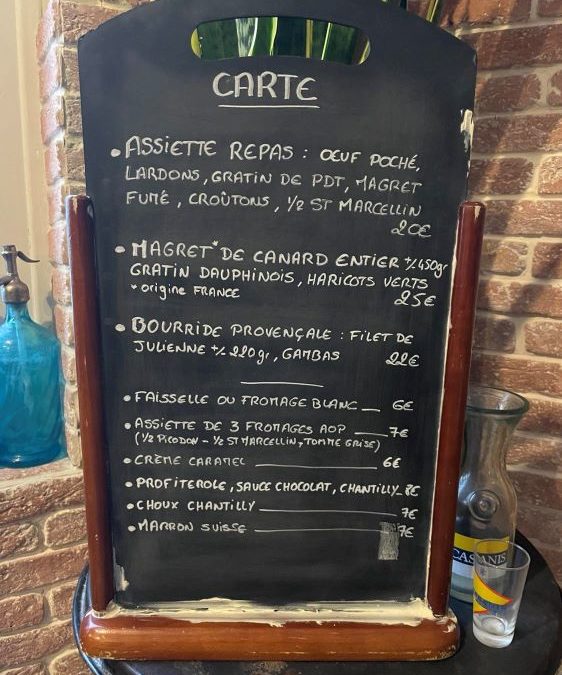 CARTE
• ASSIETTE REPAS : OEUF POCHÉ,
LARDONS, GRATIN DE PDT, MAGRET
FUMÉ, CROÛTONS, 1/2 ST MARCELLIN
20€
• MAGRET* DE CANARD ENTIER +/- 450gr
GRATIN DAUPHINOIS, HARICOTS VERTS
* origine FRANCE 25€
• BOURRIDE PROVENÇALE : FILET DE
JULIENNE +/- 220gr, GAMBAS 22€
• FAISSELLE OU FROMAGE BLANC 6€
• ASSIETTE DE 3 FROMAGES AOP 7€
(1/2 PICODON - 1/2 ST MARCELLIN, TOMME GRISE)
• CRÈME CARAMEL 6€
• PROFITEROLE, SAUCE CHOCOLAT, CHANTILLY 8€
• CHOUX CHANTILLY 7€
• MARRON SUISSE 7€
CASANIS